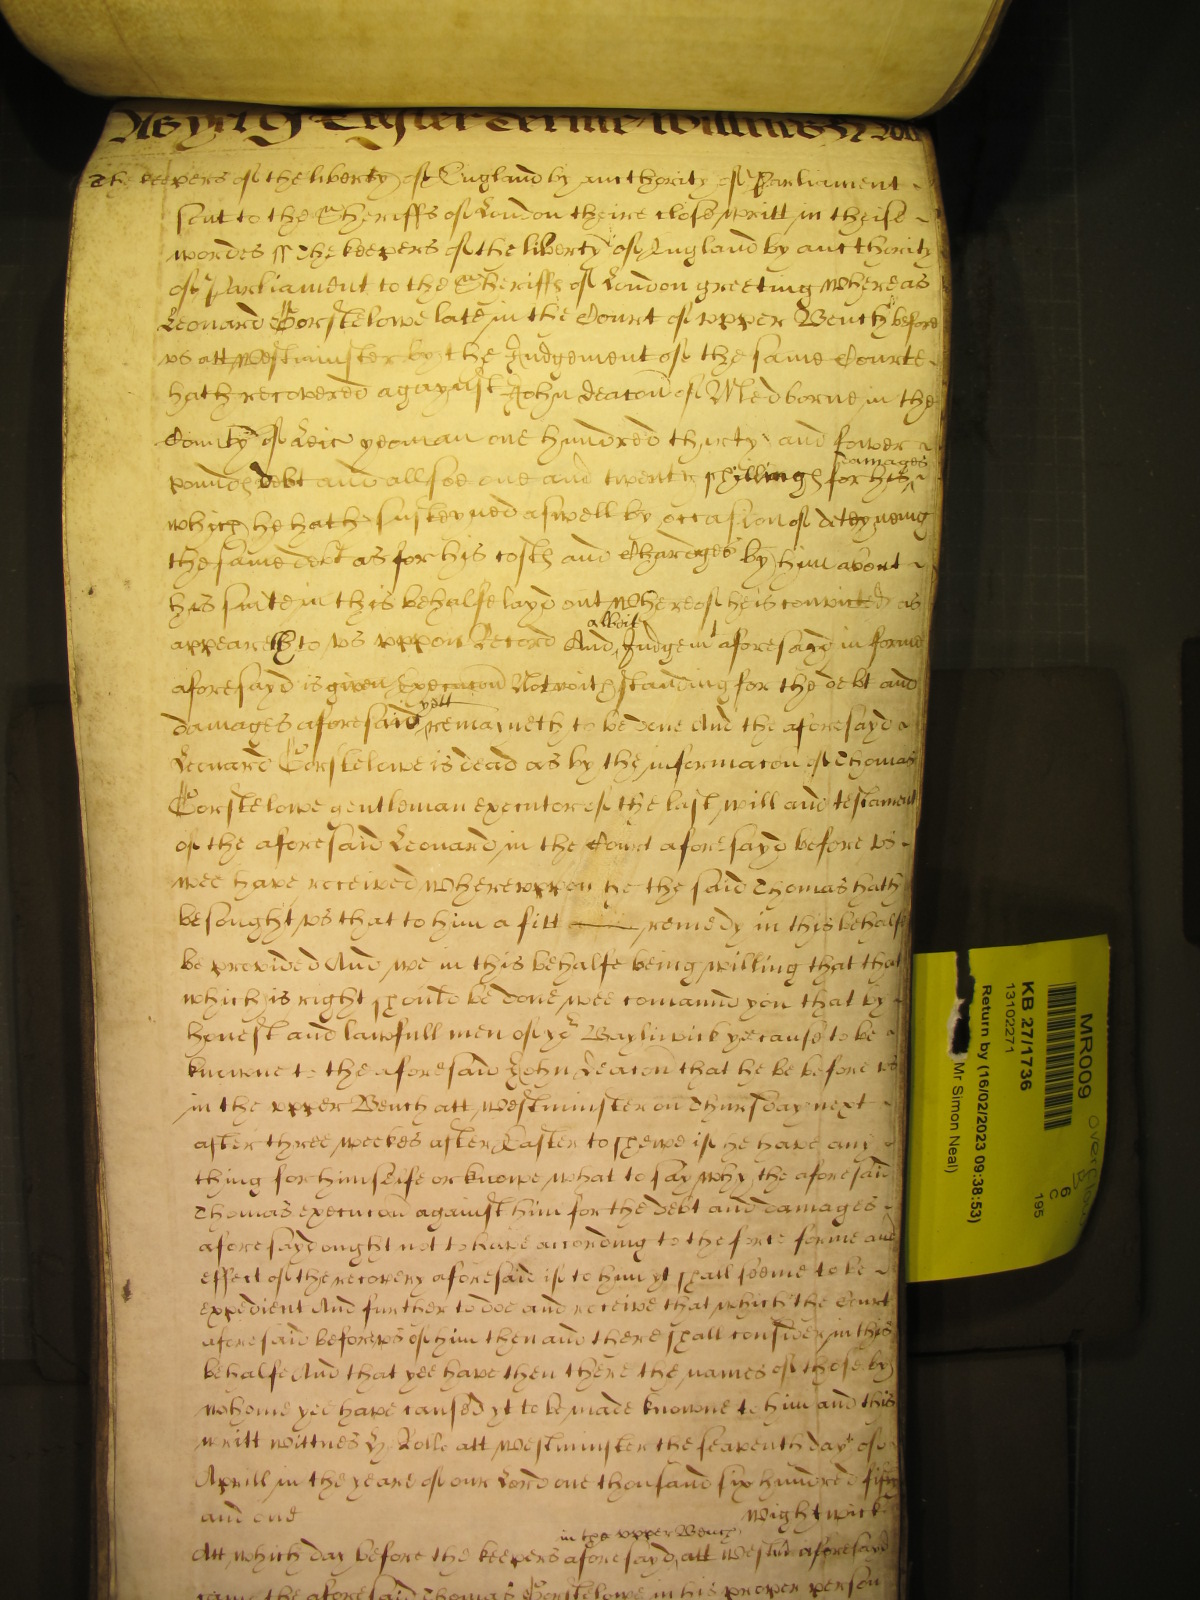 As yet of Easter Terme Wittnes H Rolle
The keepers of the liberty of England by authority of Parliament
sent to the Sheriffs of London theire close writt in theise
wordes ss The keepers of the liberty of England by aucthority
of Parliament to the Sheriffs of London greeting Whereas
Leonard Corstelowe late in the Court of upper Bench before
us att Westminster by the Judgement of the same Courte
hath recovered agaynst John Deacon of Medborne in the
County of Leic yeoman one hundred thirty and fower
pounds debt and allsoe one and twenty shillings for his damages
which he hath susteyned aswell by occasion of deteyneing
the same debt as for his costs and Chardges by him about
his suite in this behalfe layd out Whereof he is convicted as
appeareth to us uppon Record And albeit Judgemt aforesayd in forme
aforesayd is given Execucon Notwithstanding for the debt and
damages aforesaid yett remayneth to be done And the aforesayd
Leonard Corstelowe is dead as by the informacon of Thomas
Corstelowe gentleman executor of the last will and testament
of the aforesaid Leonard in the Court aforesayd before us
wee have received Whereuppon he the said Thomas hath
besought us that to him a fitt remedy in this behalfe
be provided And we in this behalfe being willing that that
which is right should be done wee comaund you that by
honest and lawfull men of yor Bayliwick ye cause to be
knowne to the aforesaid John Deacon that he be before us
in the upper Bench att Westminster on Thursday next
after three weekes after Easter to shewe if he have any
thing for himselfe or knowe what to say why the aforesaid
Thomas execucon against him for the debt and damages
aforesayd ought not to have according to the force forme and
effect of the recovery aforesaid if to him yt shall seeme to be
expedient And further to doe and receive that which the Court
aforesaid before us of him then and there shall consider in this
behalfe And that yee have then there the names of those by
whome yee have caused yt to be made knowne to him and this
writt Wittnes H Rolle att Westminster the seaventh day of
Aprill in the yeare of our Lord one thousand six hundred fifty
and one Wightwick
Att which day before the keepers aforesayd in the upper Bench att Westmr aforesayd
came the aforesaid Thomas Corstelowe in his proper person
MR009
KB 27/1736
13102271
Return by (16/02/2023 09:38:53)
Mr Simon Neal)
6
C
195